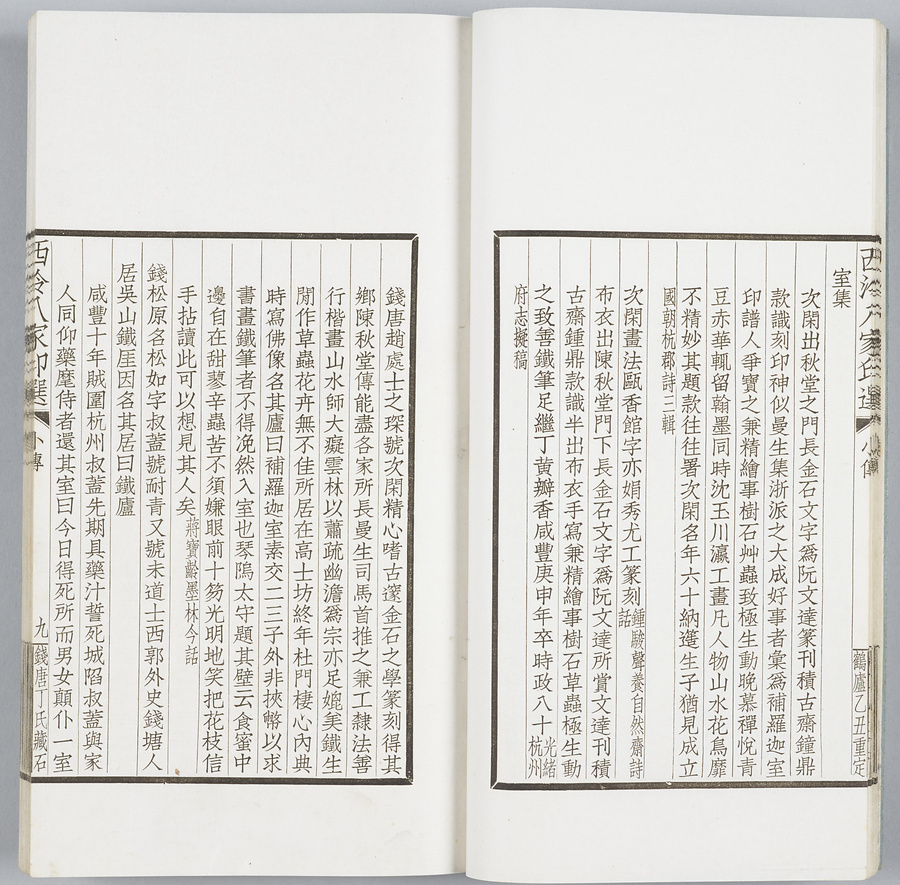 西泠八家印選 小傳
鶴廬乙丑重定
室集
次閑出秋堂之門長金石文字爲阮文達篆刊積古齋鐘鼎
款識刻印神似曼生集浙派之大成好事者彙爲補羅迦室
印譜人爭寶之兼精繪事樹石艸蟲致極生動晚慕禪悅青
豆赤華輒留翰墨同時沈玉川瀛工畫凡人物山水花鳥靡
不精妙其題款往往署次閑名年六十納蓬生子猶見成立
國朝杭郡詩三輯
次閑畫法甌香館字亦娟秀尤工篆刻鍾駿聲養自然齋詩話
布衣出陳秋堂門下長金石文字爲阮文達所賞文達刊積
古齋鍾鼎款識半出布衣手寫兼精繪事樹石草蟲極生動
之致善鐵筆足繼丁黃瓣香咸豐庚申年卒時政八十光緒杭州
府志擬稿
錢唐趙處士之琛號次閑精心嗜古邃金石之學篆刻得其
鄉陳秋堂傳能盡各家所長曼生司馬首推之兼工隸法善
行楷畫山水師大癡雲林以蕭疏幽澹爲宗亦足媲美鐵生
閒作草蟲花卉無不佳所居在高士坊終年杜門棲心內典
時寫佛像名其廬曰補羅迦室素交二三子外非挾幣以求
書畫鐵筆者不得浼然入室也琴隖太守題其壁云食蜜中
邊自在甜蓼辛蟲苦不須嫌眼前十笏光明地笑把花枝信
手拈讀此可以想見其人矣蔣寶齡墨林今話
錢松原名松如字叔蓋號耐青又號未道士西郭外史錢塘人
居吳山鐵厓因名其居曰鐵廬
咸豐十年賊圍杭州叔蓋先期具藥汁誓死城陷叔蓋與家
人同仰藥麾侍者還其室曰今日得死所而男女顛仆一室
西泠八家印選 小傳 九
錢唐丁氏藏石